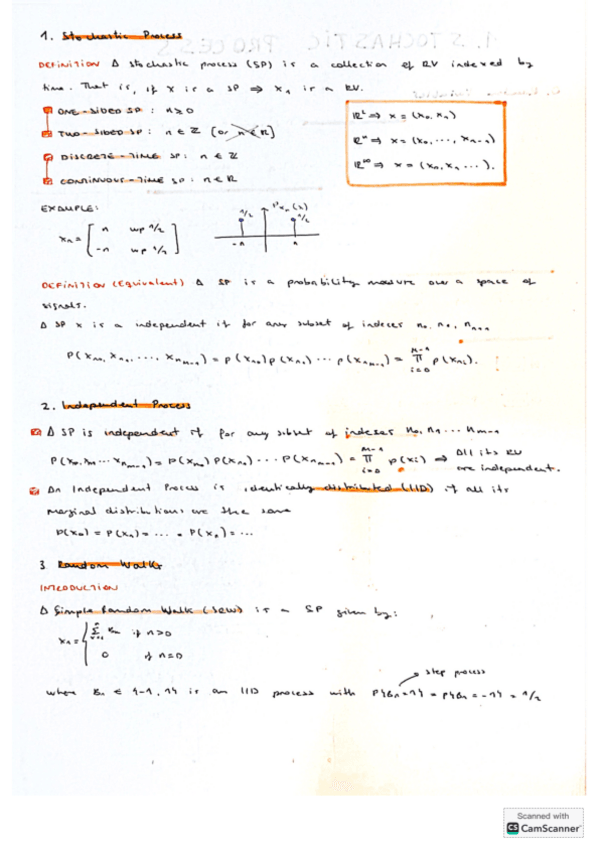 1. Stochastic Process
DEFINITION A stochastic process (SP) is a collection of RV indexed by
time. That is, if X is a SP ⇒ Xn is a RV.
ONE-SIDED SP: n ≥ 0
TWO-SIDED SP: n ∈ ℤ [or n ∈ ℝ]
DISCRETE-TIME SP: n ∈ ℤ
CONTINUOUS-TIME SP: n ∈ ℝ
ℝ² ⇒ x = (x0, x1)
ℝⁿ ⇒ x = (x0, ..., xn-1)
ℝ∞ ⇒ x = (x0, x1 ...).
EXAMPLE:
Xn = [ n wp 1/2
-n wp 1/2 ]
1/2 Pxn(x) 1/2
-n n
DEFINITION (Equivalent) A SP is a probability measure over a space of
signals.
A SP x is a independent if for any subset of indeces n0, n1, nm-1
P(Xn0, Xn1, ..., Xnm-1) = p(Xn0) p(Xn1) ... p(Xnm-1) = ∏ i=0 m-1 p(Xni).
2. Independent Process
A SP is independent if for any subset of indexes n0, n1 ... nm-1
P(Xn0 Xn1 ... Xnm-1) = p(Xn0) P(Xn1) ... P(Xnm-1) = ∏ i=0 m-1 p(xi) ⇒ All its RV
are independent.
An Independent Process is identically distributed (IID) if all its
marginal distributions are the same
p(x0) = P(x1) = ... = P(xn) = ...
3 Random Walks
INTRODUCTION
A Simple Random Walk (SRW) is a SP given by:
Xn = { ∑ Bn if n>0
0 if n=0
step process
where Bn ∈ {-1, 1} is an IID process with P{Bn=1} = P{Bn=-1} = 1/2
Scanned with
CS CamScanner